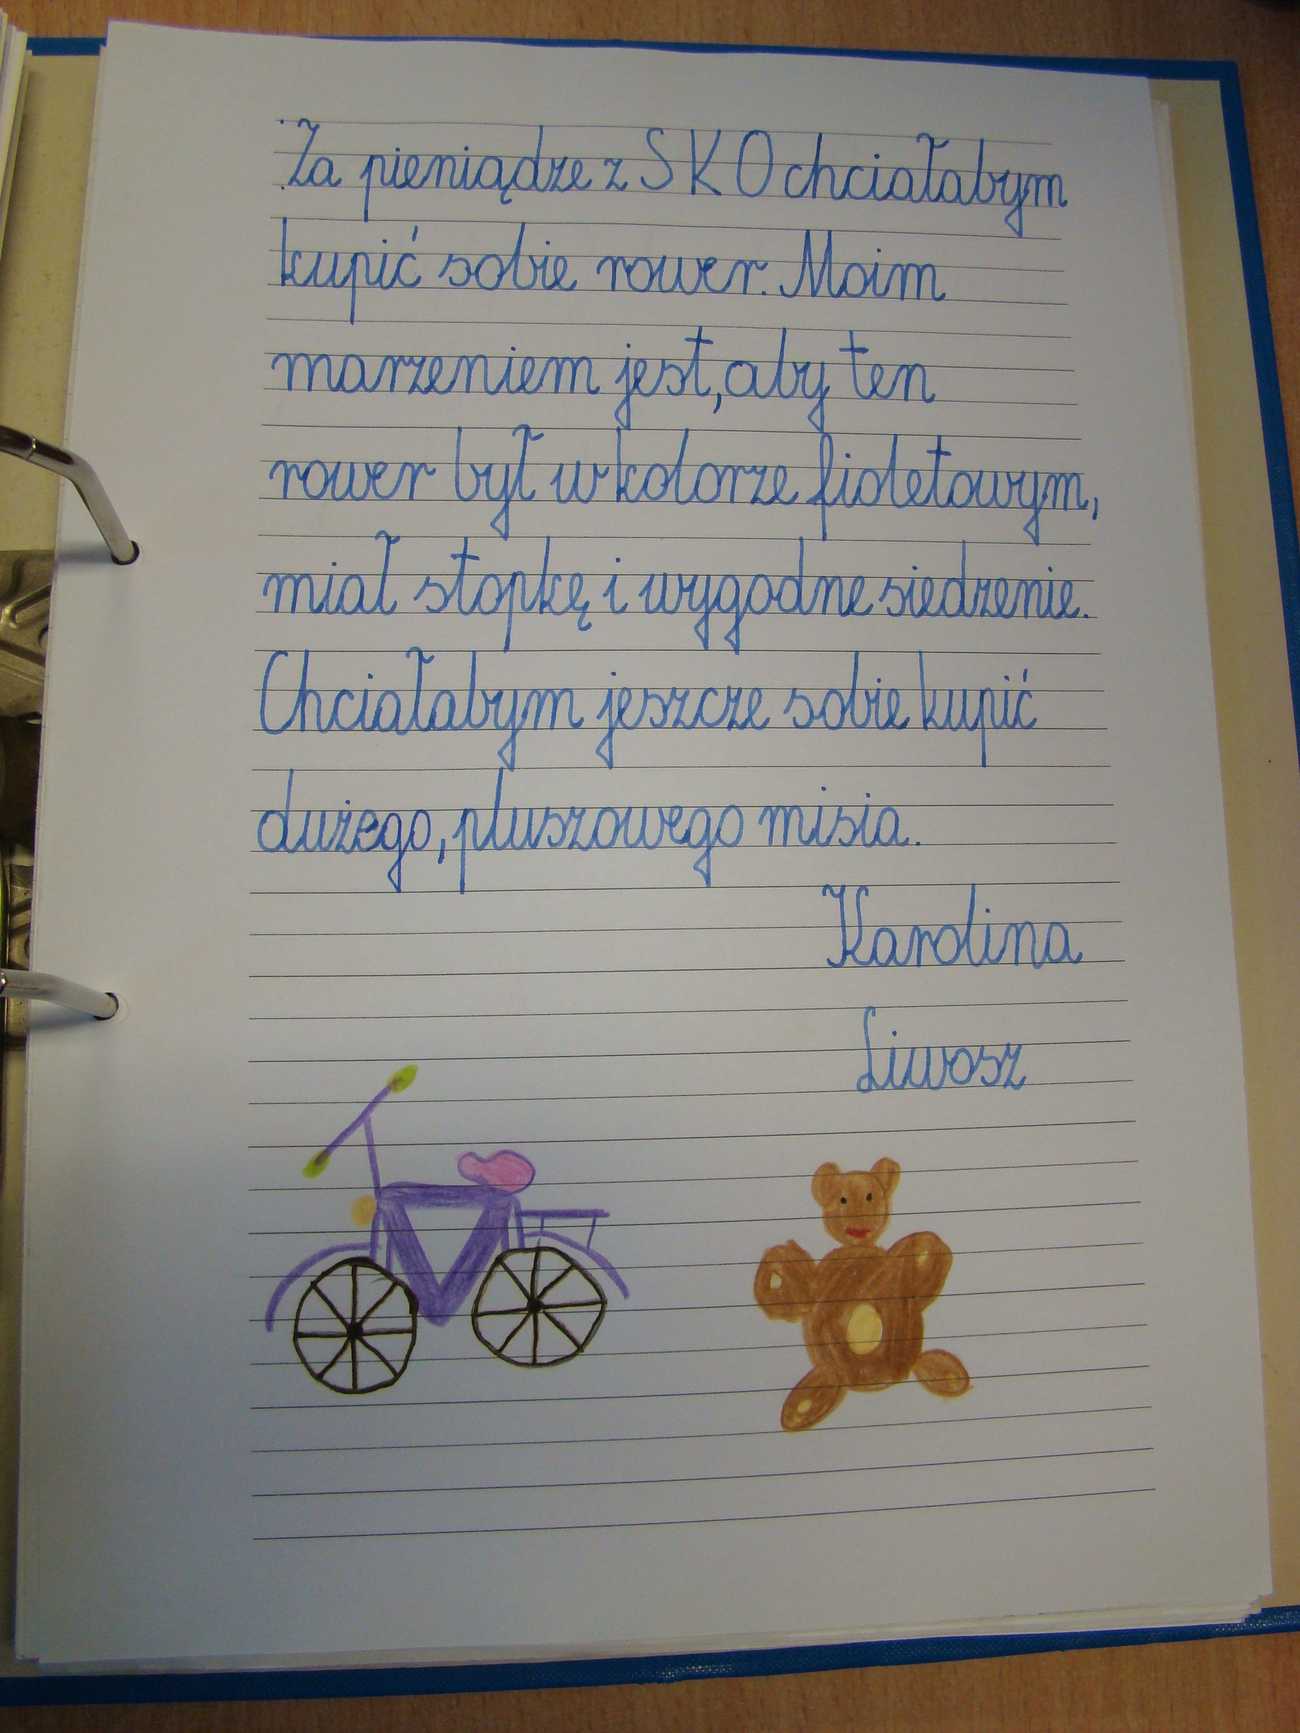 Za pieniądze z SKO chciałabym
kupić sobie rower. Moim
marzeniem jest, aby ten
rower był w kolorze fioletowym,
miał stopkę i wygodne siedzenie.
Chciałabym jeszcze sobie kupić
dużego, pluszowego misia.
Karolina
Liwosz